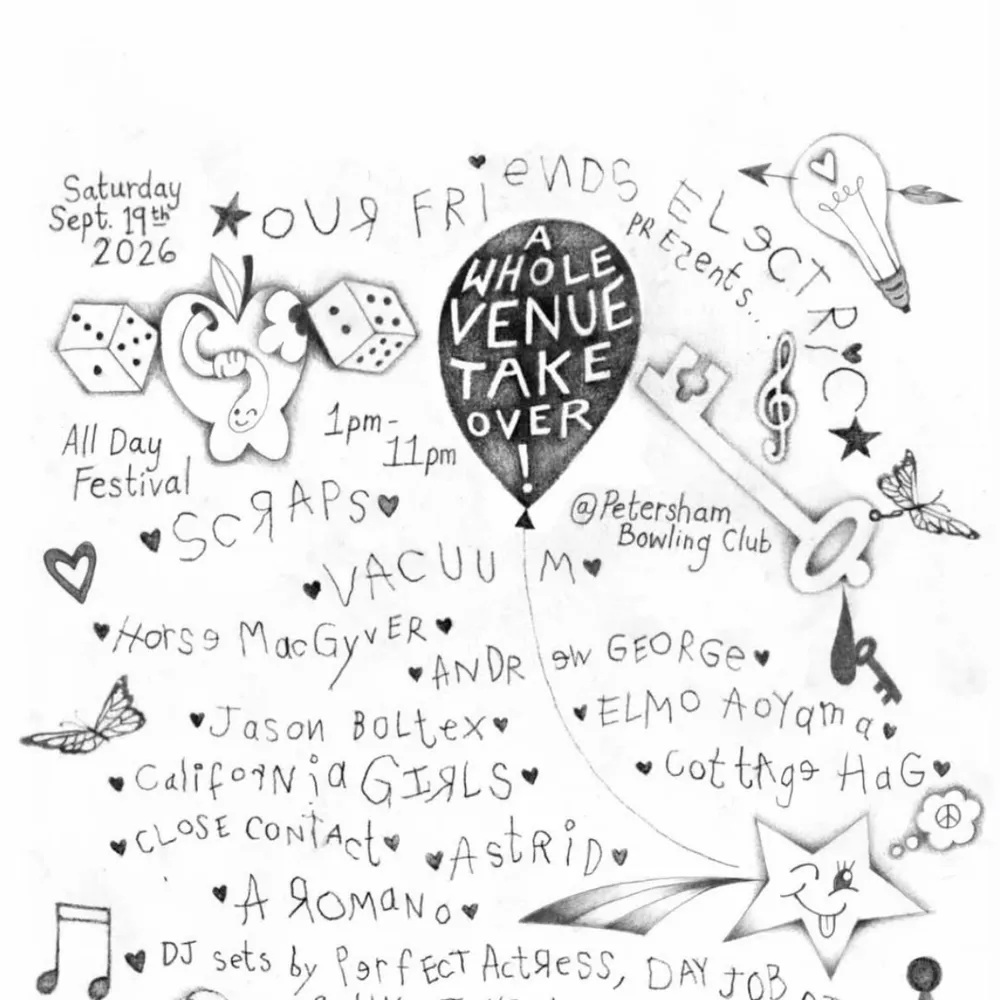 Saturday
Sept. 19th
2026
OUR FRiENDS ELECTRiC
PREzents...
A
WHOLE
VENUE
TAKE
OVER
!
1pm-
11pm
All Day
Festival
@Petersham
Bowling Club
SCRAPS
VACUUM
Horse MacGyvER
ANDRew GEORGe
Jason BOLtex
ELMO AoYama
CalifoRNia GIRLS
Cottage HaG
CLOSE CONTAct
AstRiD
A ROMaNo
DJ sets by PerfECT ActRess, DAY JOB